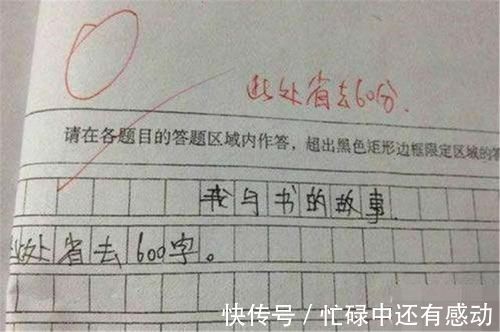 此处省去60分.
请在各题目的答题区域内作答，超出黑色矩形边框限定区域的答
我与书的故事.
此处省去600字。
快传号/忙碌中还有感动